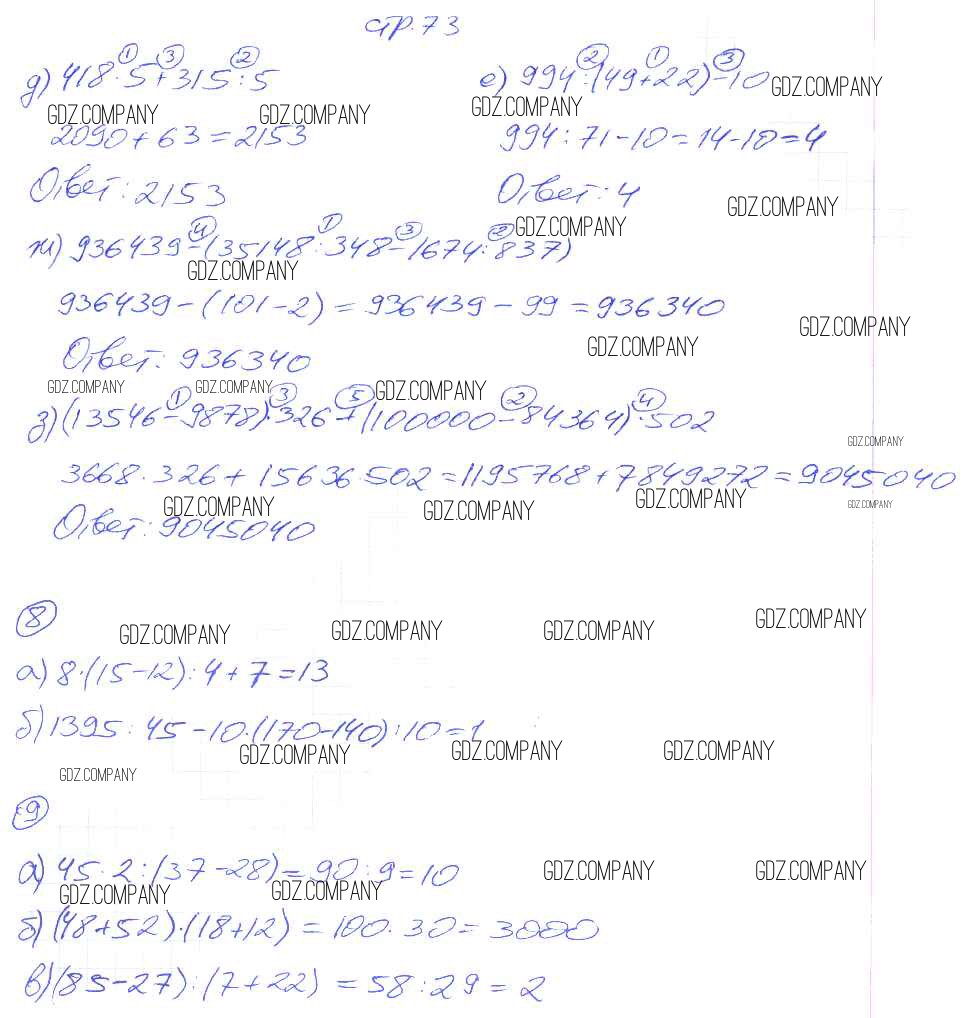 стр. 73
① ③ ② ② ① ③
д) 418·5+315:5 е) 994:(49+22)-10 GDZ.COMPANY
GDZ.COMPANY GDZ.COMPANY GDZ.COMPANY
2090+63=2153 994:71-10=14-10=4
Ответ: 2153 Ответ: 4 GDZ.COMPANY
④ ① ③ ② GDZ.COMPANY
ж) 936439-(35148:348-1674:837)
GDZ.COMPANY
936439-(101-2)=936439-99=936340
GDZ.COMPANY
Ответ: 936340 GDZ.COMPANY
GDZ.COMPANY GDZ.COMPANY GDZ.COMPANY
① ③ ⑤ ② ④
з) (13546-9878)·326+(100000-84364)·502
GDZ.COMPANY
3668·326+15636·502=1195768+7849272=9045040
GDZ.COMPANY GDZ.COMPANY GDZ.COMPANY GDZ.COMPANY
Ответ: 9045040
⑧
GDZ.COMPANY GDZ.COMPANY GDZ.COMPANY GDZ.COMPANY
а) 8·(15-12):4+7=13
б) 1395:45-10·(170-140):10=1
GDZ.COMPANY GDZ.COMPANY GDZ.COMPANY
GDZ.COMPANY
⑨
а) 45·2:(37-28)=90:9=10 GDZ.COMPANY GDZ.COMPANY
GDZ.COMPANY GDZ.COMPANY
б) (48+52)·(18+12)=100·30=3000
в) (85-27):(7+22)=58:29=2